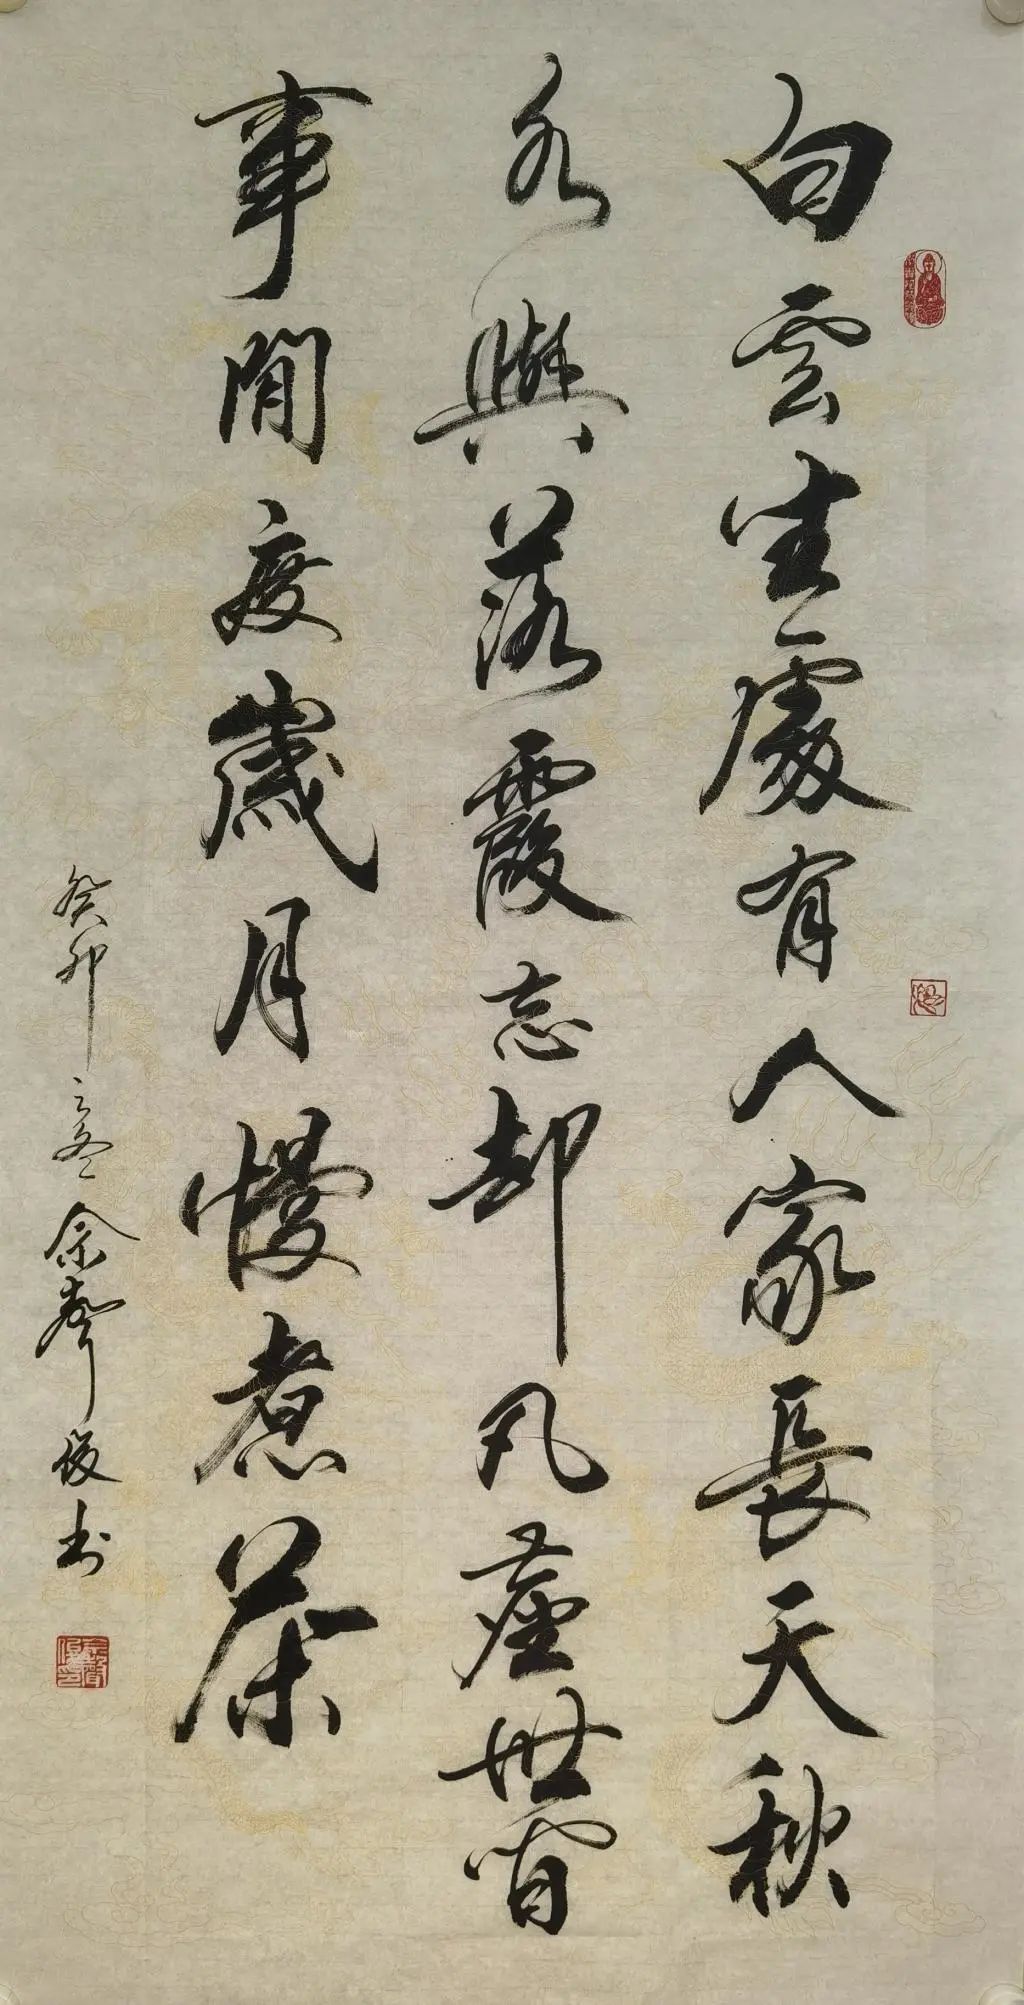 白雲生處有人家長天秋
水與落霞忘却凡塵世間
事閒度歲月慢煮茶
癸卯之冬余聲俊书